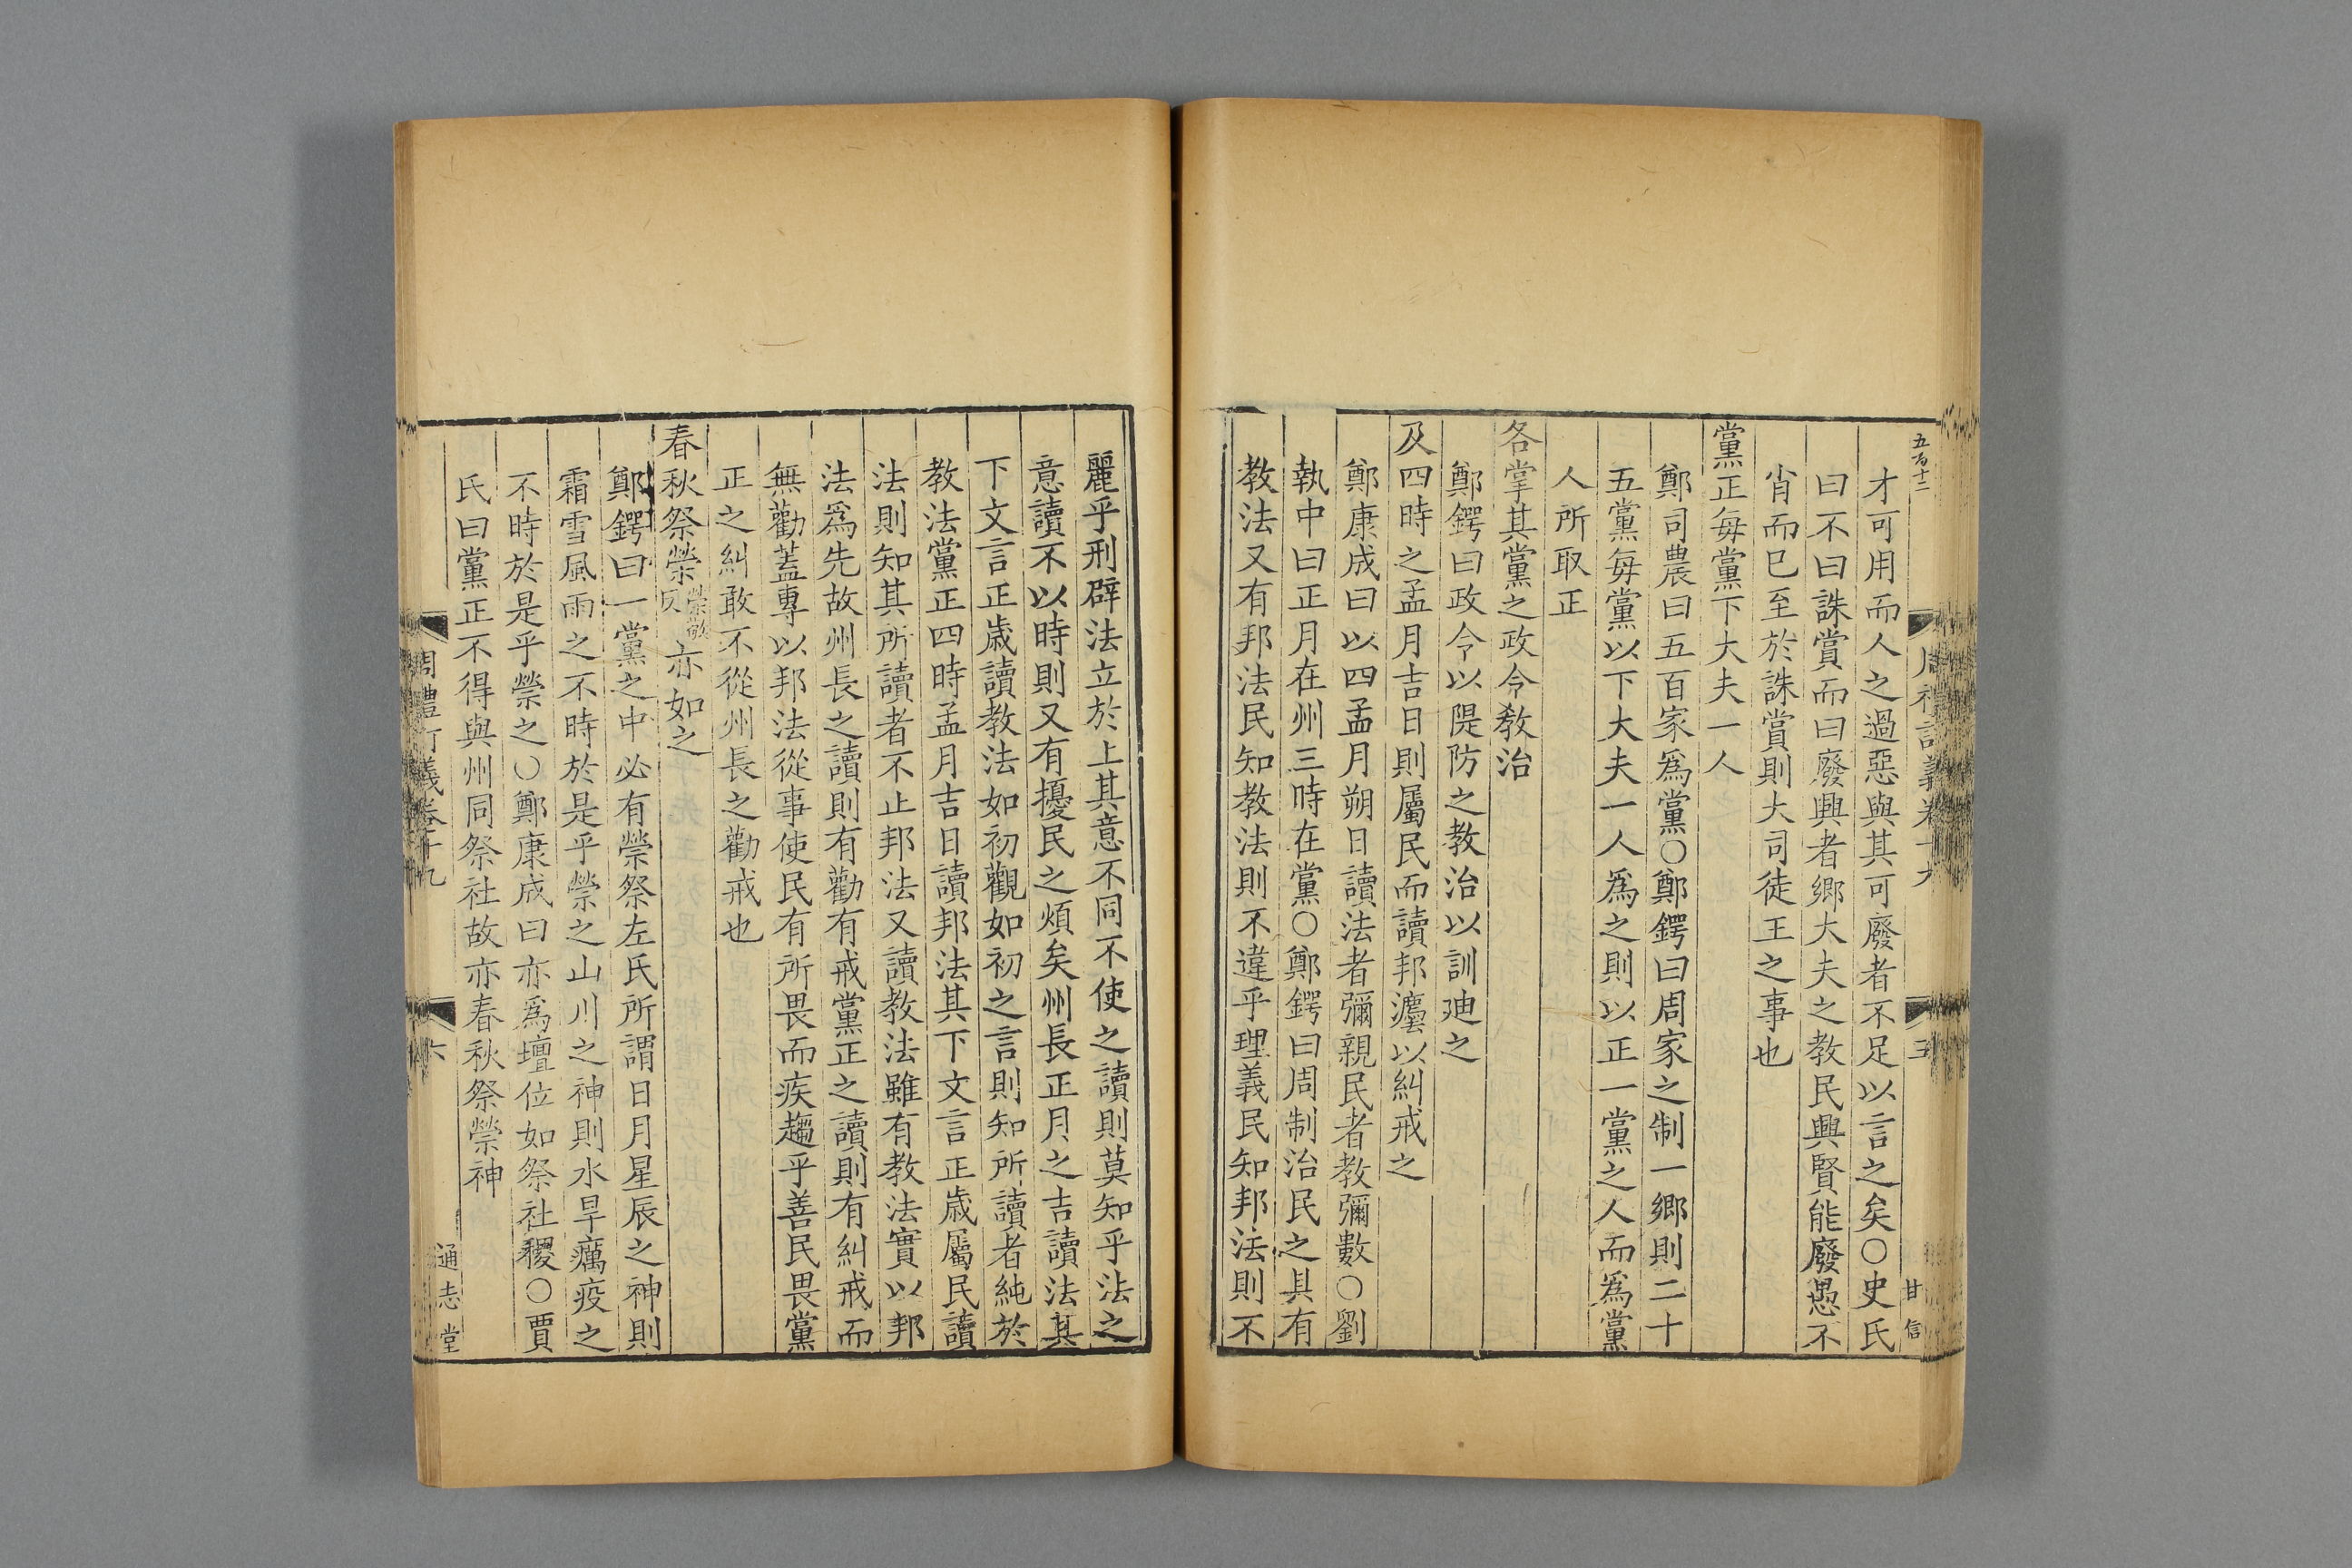 五百十二
才可用而人之過惡與其可廢者不足以言之矣○史氏
曰不曰誅賞而曰廢興者鄉大夫之教民興賢能廢愚不
肖而巳至於誅賞則大司徒王之事也
黨正每黨下大夫一人
鄭司農曰五百家爲黨○鄭鍔曰周家之制一鄉則二十
五黨每黨以下大夫一人爲之則以正一黨之人而爲黨
人所取正
各掌其黨之政令敎治
鄭鍔曰政令以隄防之教治以訓廸之
及四時之孟月吉日則屬民而讀邦灋以糾戒之
鄭康成曰以四孟月朔日讀法者彌親民者教彌數○劉
執中曰正月在州三時在黨○鄭鍔曰周制治民之具有
教法又有邦法民知教法則不違乎理義民知邦法則不
甘信
麗乎刑辟法立於上其意不同不使之讀則莫知乎法之
意讀不以時則又有擾民之煩矣州長正月之吉讀法其
下文言正歲讀教法如初觀如初之言則知所讀者純於
教法黨正四時孟月吉日讀邦法其下文言正歲屬民讀
法則知其所讀者不止邦法又讀教法雖有教法實以邦
法爲先故州長之讀則有勸有戒黨正之讀則有糾戒而
無勸蓋專以邦法從事使民有所畏而疾趨乎善民畏黨
正之糾敢不從州長之勸戒也
春秋祭禜禜敬反亦如之
鄭鍔曰一黨之中必有禜祭左氏所謂日月星辰之神則
霜雪風雨之不時於是乎禜之山川之神則水旱癘疫之
不時於是乎禜之○鄭康成曰亦爲壇位如祭社稷○賈
氏曰黨正不得與州同祭社故亦春秋祭禜神
周禮訂義卷十九
六
通志堂